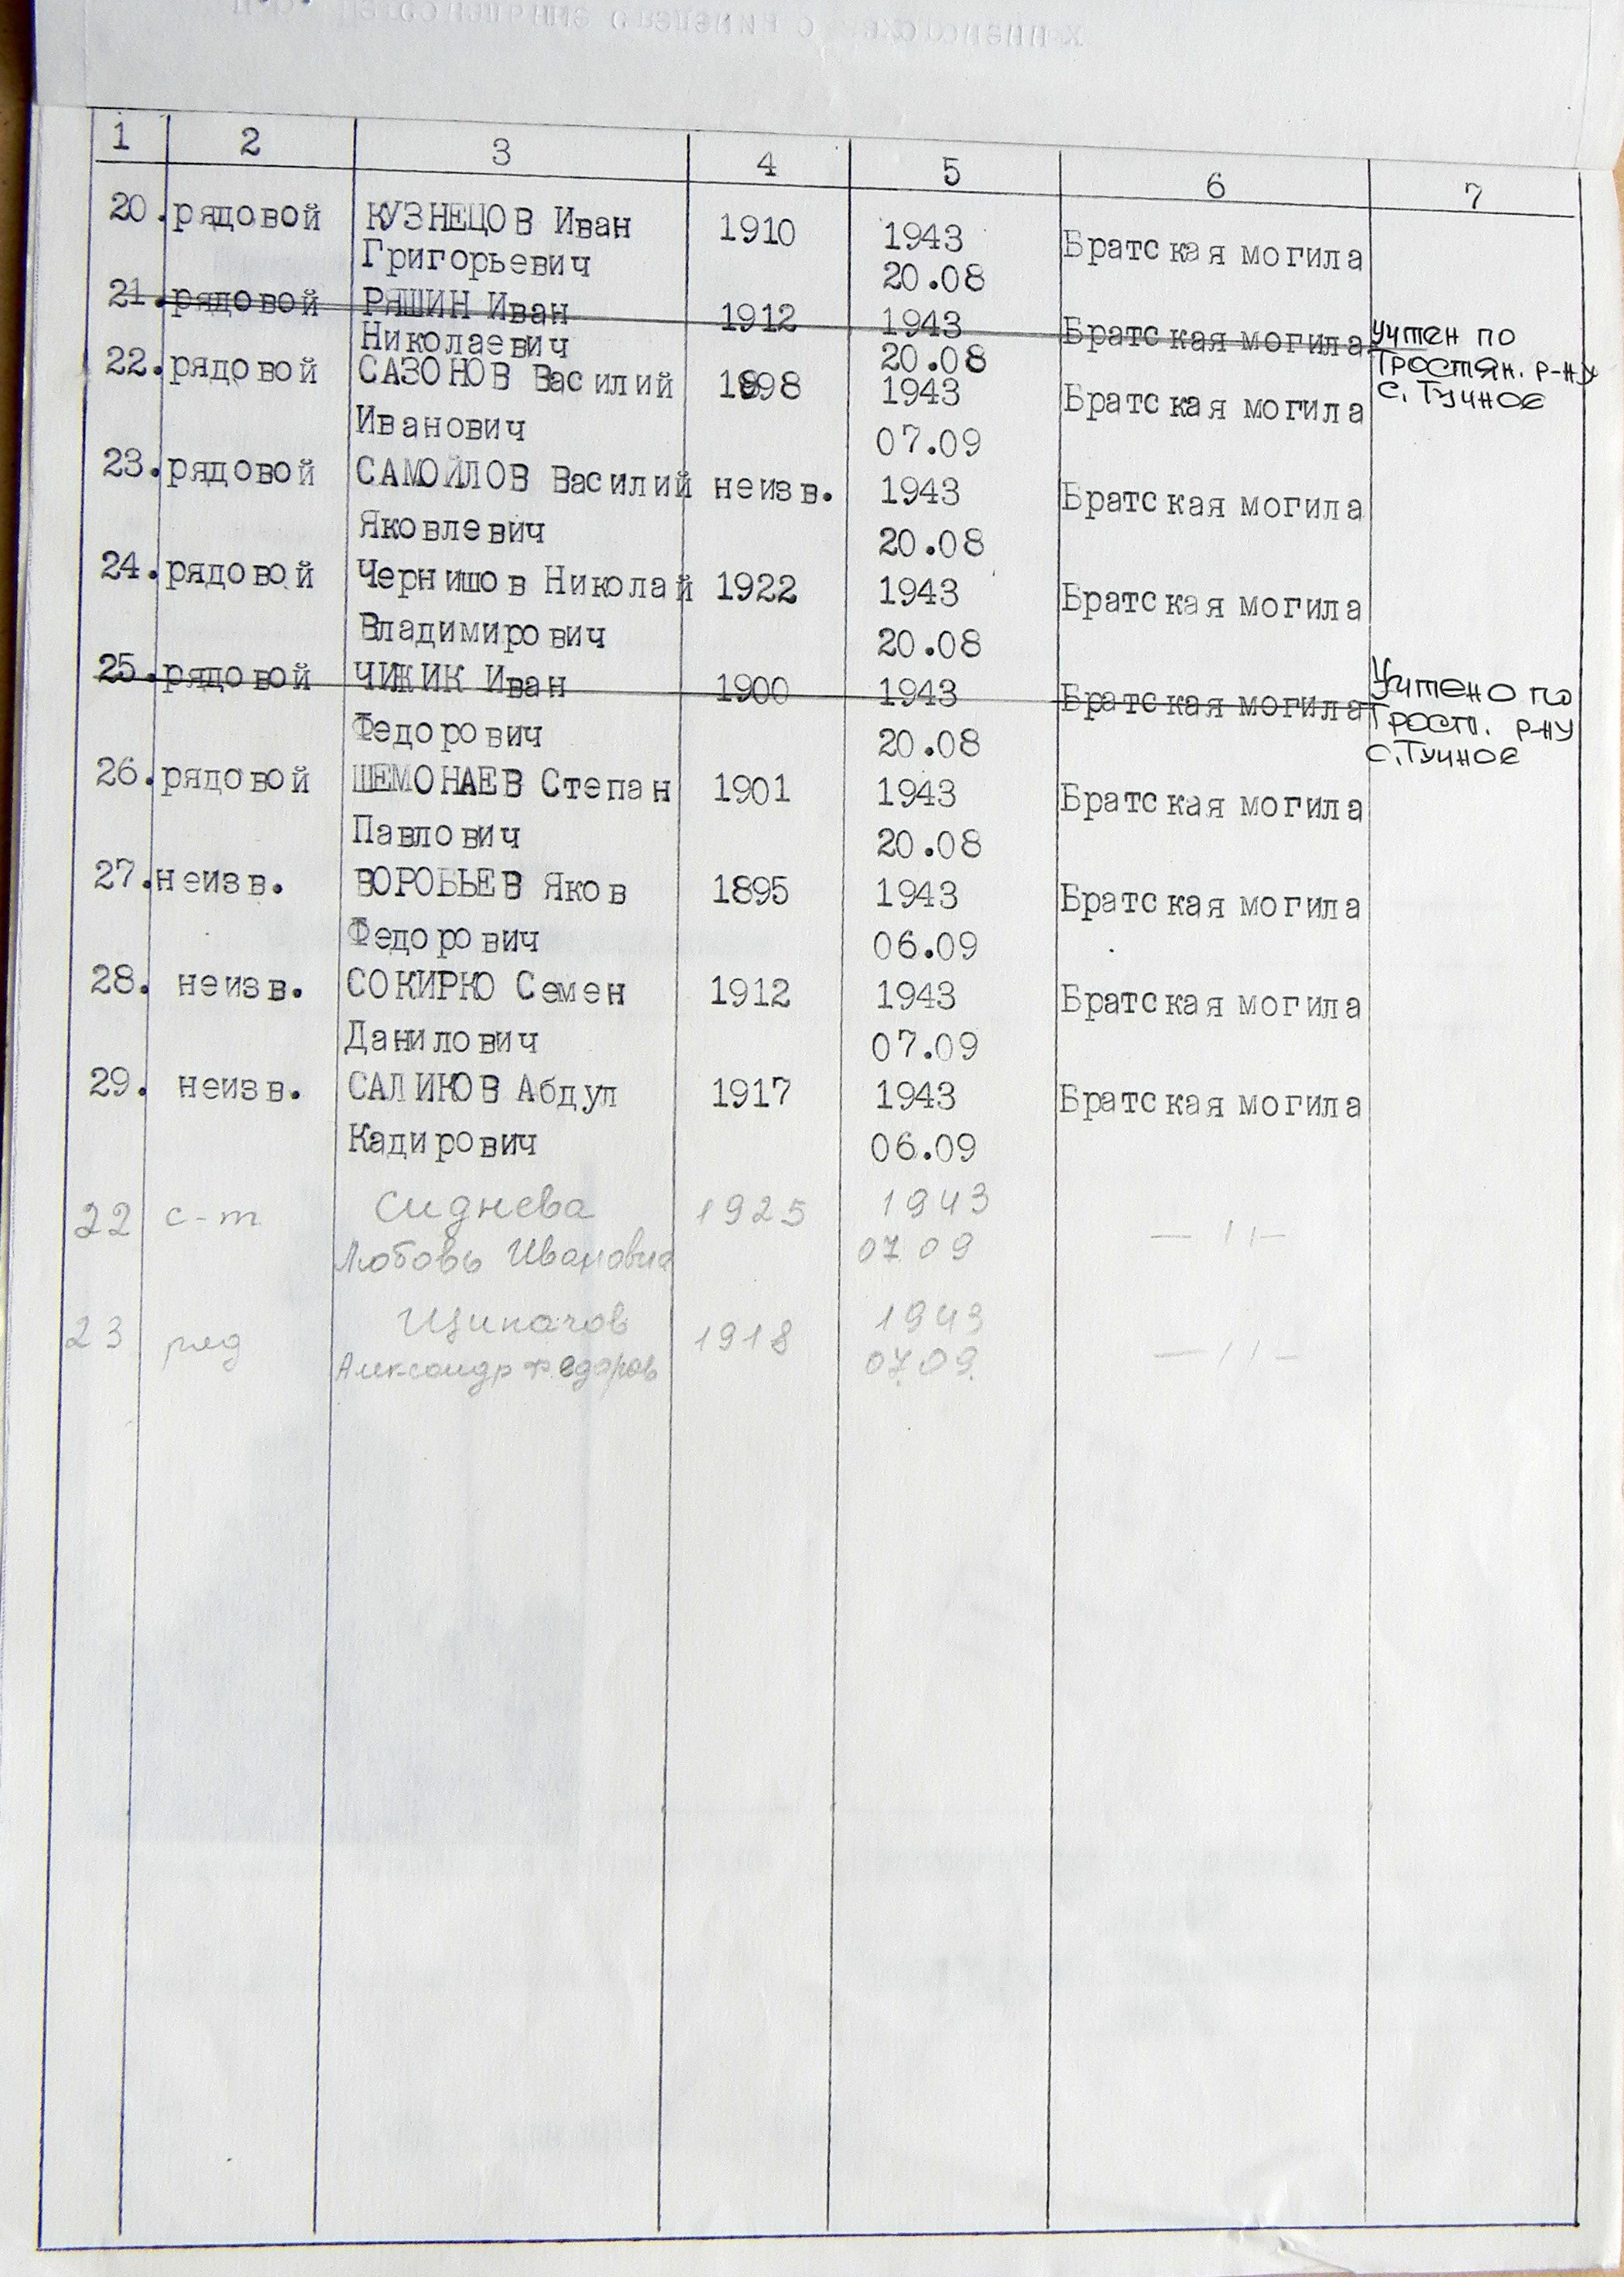 1 2 3 4 5 6 7
20. рядовой КУЗНЕЦОВ Иван 1910 1943 Братская могила
Григорьевич 20.08
21. рядовой РЯШИН Иван 1912 1943 Братская могила учтен по
Николаевич 20.08 Тростян. р-ну
22. рядовой САЗОНОВ Василий 1898 1943 Братская могила с. Тучное
Иванович 07.09
23. рядовой САМОЙЛОВ Василий неизв. 1943 Братская могила
Яковлевич 20.08
24. рядовой Чернишов Николай 1922 1943 Братская могила
Владимирович 20.08
25. рядовой ЧИЖИК Иван 1900 1943 Братская могила Учтено по
Федорович 20.08 Трост. р-ну
с. Тучное
26. рядовой ШЕМОНАЕВ Степан 1901 1943 Братская могила
Павлович 20.08
27. неизв. ВОРОБЬЕВ Яков 1895 1943 Братская могила
Федорович 06.09
28. неизв. СОКИРКО Семен 1912 1943 Братская могила
Данилович 07.09
29. неизв. САЛИКОВ Абдул 1917 1943 Братская могила
Кадирович 06.09
22 с-т Сиднева 1925 1943 — 11 —
Любовь Ивановна 07 09
23 ряд Щипачов 1918 1943 — 11 —
Александр Федоров 07.09.